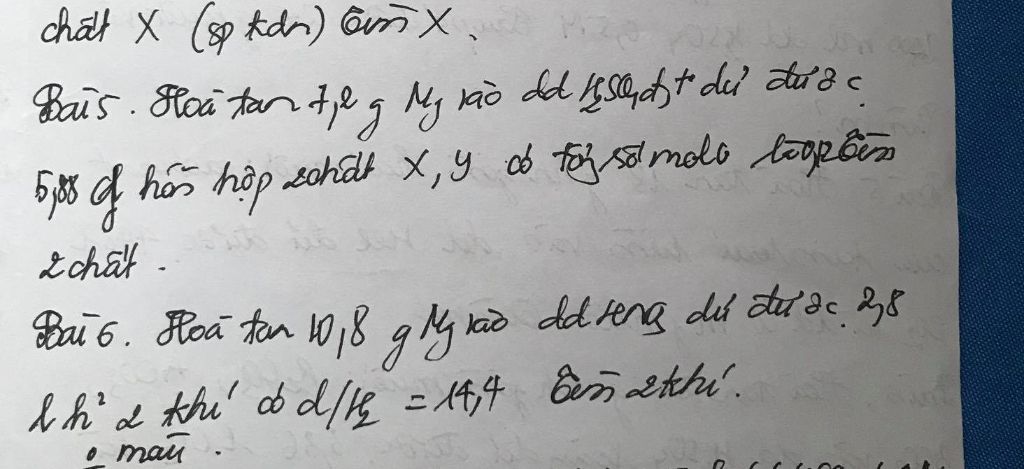 chất X (sp kdn) tìm X.
Bài 5. Hoà tan 7,2 g Mg vào dd H₂SO₄ đ, t° dư được
5,88 g hỗn hợp 2 chất X, Y có tổng số mol 0, tìm
2 chất.
Bài 6. Hoà tan 10,8 g Mg vào dd dư được 2,8
l h² 2 khí có d/H₂ = 14,4 tìm 2 khí.
màu.